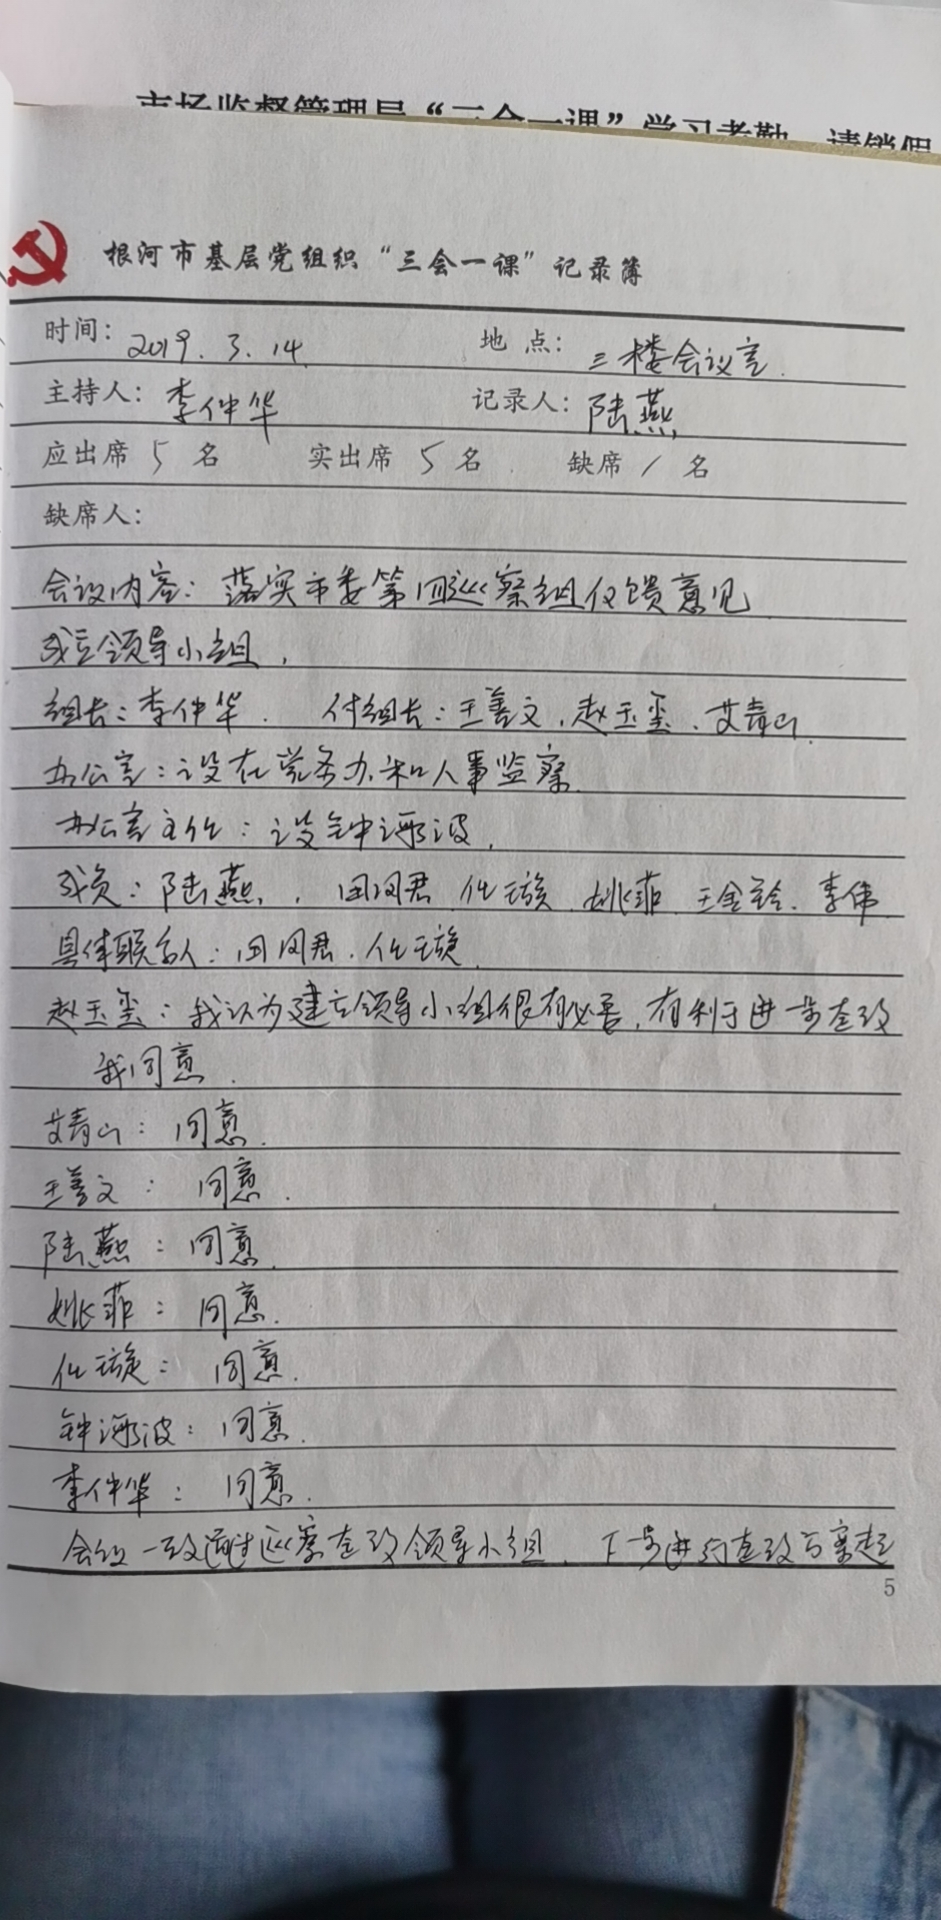 市场监督管理局“三会一课”学习考勤、请销假
根河市基层党组织“三会一课”记录簿
时间：2019.3.14 地点：三楼会议室.
主持人：李仲华 记录人：陆燕
应出席 5 名 实出席 5 名 缺席 / 名
缺席人：
会议内容：落实市委第四巡察组反馈意见
成立领导小组，
组长：李仲华. 付组长：王善文，赵玉玺、艾青山.
办公室：设在党务办和人事监察.
办公室主任：设钟海波，
成员：陆燕，田凤君 任璇 姚菲 王金玲、李伟
具体联系人：田凤君、任璇.
赵玉玺：我认为建立领导小组很有必要，有利于进一步查改
我同意.
艾青山：同意.
王善文：同意.
陆燕：同意.
姚菲：同意.
任璇：同意.
钟海波：同意.
李仲华：同意.
会议一致通过巡察查改领导小组. 下步进行查改方案起
5